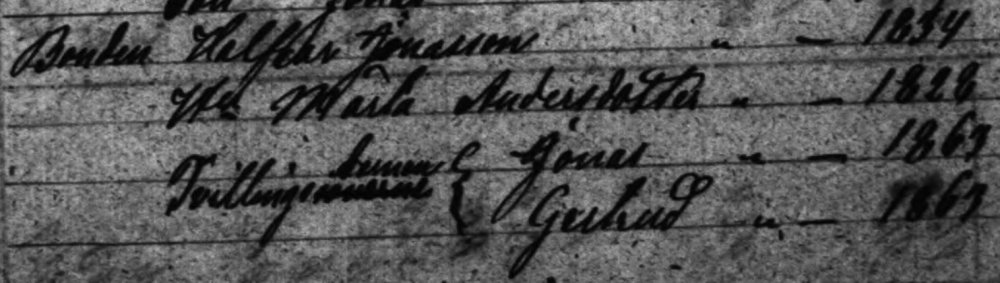 Son Jonas
Bonden Halfvar Jönsson " — 1834
H Marta Andersdotter " — 1828
Tvillingarne barnen { Jonas " — 1863
Gertrud " — 1863